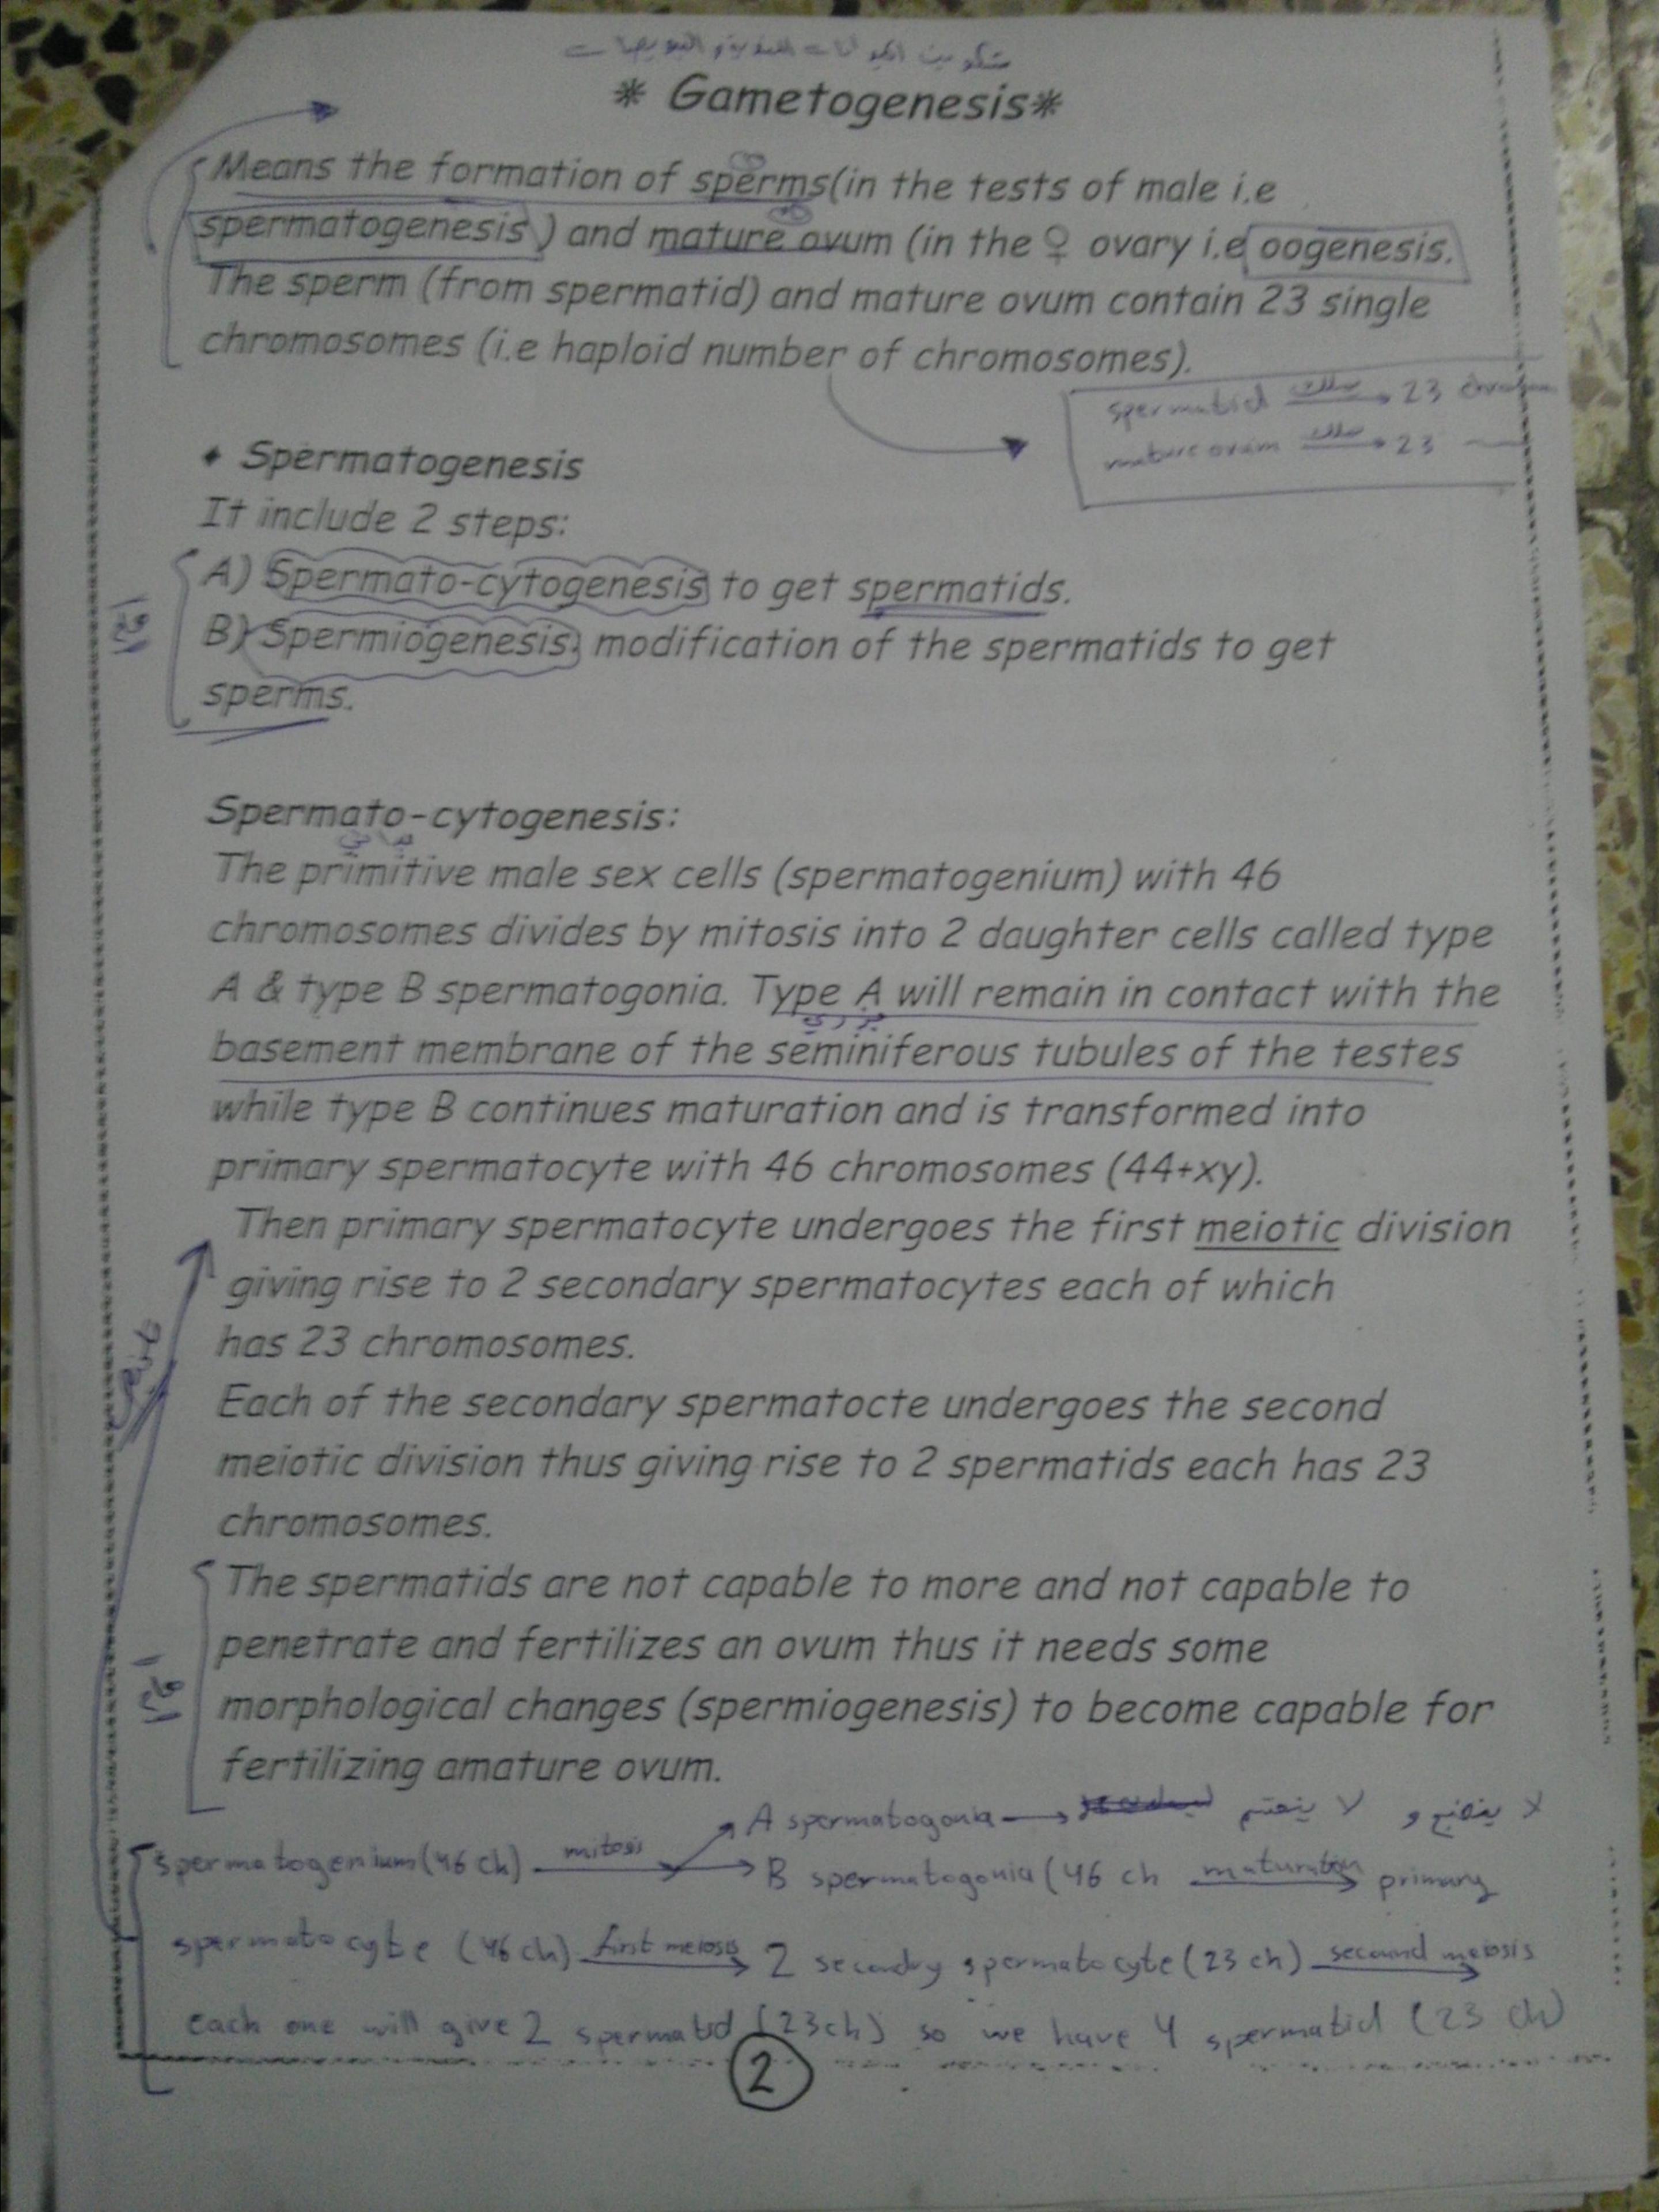 تكوين الحيوانات المنوية و البويضات
* Gametogenesis*
Means the formation of sperms(in the tests of male i.e
spermatogenesis ) and mature ovum (in the ♀ ovary i.e oogenesis.
The sperm (from spermatid) and mature ovum contain 23 single
chromosomes (i.e haploid number of chromosomes).
spermatid → 23
mature ovum → 23
♦ Spermatogenesis
It include 2 steps:
A) Spermato-cytogenesis to get spermatids.
B) Spermiogenesis: modification of the spermatids to get
sperms.
Spermato-cytogenesis:
The primitive male sex cells (spermatogenium) with 46
chromosomes divides by mitosis into 2 daughter cells called type
A & type B spermatogonia. Type A will remain in contact with the
basement membrane of the seminiferous tubules of the testes
while type B continues maturation and is transformed into
primary spermatocyte with 46 chromosomes (44+xy).
Then primary spermatocyte undergoes the first meiotic division
giving rise to 2 secondary spermatocytes each of which
has 23 chromosomes.
Each of the secondary spermatocte undergoes the second
meiotic division thus giving rise to 2 spermatids each has 23
chromosomes.
The spermatids are not capable to more and not capable to
penetrate and fertilizes an ovum thus it needs some
morphological changes (spermiogenesis) to become capable for
fertilizing amature ovum.
A spermatogonia → لا ينقسم و لا ينضج
spermatogenium (46 ch) mitosis → B spermatogonia (46 ch maturation → primary
spermatocyte (46 ch) first meiosis → 2 secondry spermatocyte (23 ch) secound meiosis →
each one will give 2 spermatid (23 ch) so we have 4 spermatid (23 ch)
2